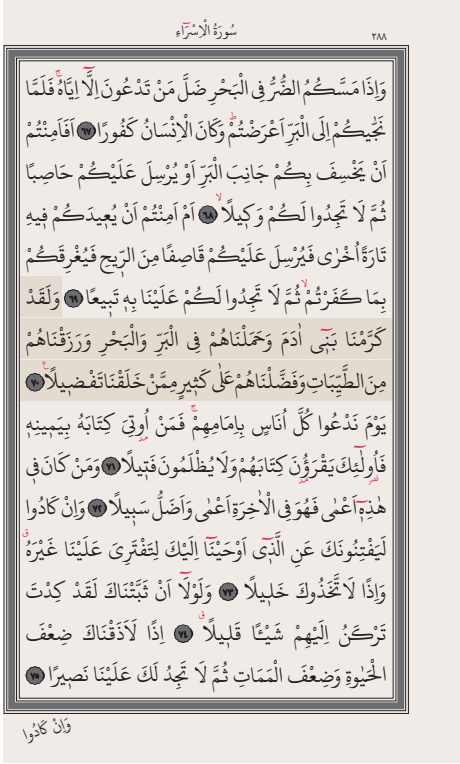 سُورَةُ الْاِسْرَٓاءِ ٢٨٨
وَاِذَا مَسَّكُمُ الضُّرُّ فِي الْبَحْرِ ضَلَّ مَنْ تَدْعُونَ اِلَّٓا اِيَّاهُۚ فَلَمَّا
نَجّٰيكُمْ اِلَى الْبَرِّ اَعْرَضْتُمْۜ وَكَانَ الْاِنْسَانُ كَفُورًا ﴿٦٧﴾ اَفَاَمِنْتُمْ
اَنْ يَخْسِفَ بِكُمْ جَانِبَ الْبَرِّ اَوْ يُرْسِلَ عَلَيْكُمْ حَاصِبًا
ثُمَّ لَا تَجِدُوا لَكُمْ وَكِيلًاۙ ﴿٦٨﴾ اَمْ اَمِنْتُمْ اَنْ يُعِيدَكُمْ فِيهِ
تَارَةً اُخْرٰى فَيُرْسِلَ عَلَيْكُمْ قَاصِفًا مِنَ الرِّيحِ فَيُغْرِقَكُمْ
بِمَا كَفَرْتُمْۙ ثُمَّ لَا تَجِدُوا لَكُمْ عَلَيْنَا بِهِ تَبِيعًا ﴿٦٩﴾ وَلَقَدْ
كَرَّمْنَا بَنِٓي اٰدَمَ وَحَمَلْنَاهُمْ فِي الْبَرِّ وَالْبَحْرِ وَرَزَقْنَاهُمْ
مِنَ الطَّيِّبَاتِ وَفَضَّلْنَاهُمْ عَلٰى كَثِيرٍ مِمَّنْ خَلَقْنَا تَفْضِيلًا۟ ﴿٧٠﴾
يَوْمَ نَدْعُوا كُلَّ اُنَاسٍ بِاِمَامِهِمْۚ فَمَنْ اُو۫تِيَ كِتَابَهُ بِيَمِينِهِ
فَاُو۬لٰٓئِكَ يَقْرَؤُ۫نَ كِتَابَهُمْ وَلَا يُظْلَمُونَ فَتِيلًا ﴿٧١﴾ وَمَنْ كَانَ فِي
هٰذِهِٓ اَعْمٰى فَهُوَ فِي الْاٰخِرَةِ اَعْمٰى وَاَضَلُّ سَبِيلًا ﴿٧٢﴾ وَاِنْ كَادُوا
لَيَفْتِنُونَكَ عَنِ الَّذِٓي اَوْحَيْنَٓا اِلَيْكَ لِتَفْتَرِيَ عَلَيْنَا غَيْرَهُۗ
وَاِذًا لَاتَّخَذُوكَ خَلِيلًا ﴿٧٣﴾ وَلَوْلَٓا اَنْ ثَبَّتْنَاكَ لَقَدْ كِدْتَ
تَرْكَنُ اِلَيْهِمْ شَيْـًٔا قَلِيلًاۗ ﴿٧٤﴾ اِذًا لَاَذَقْنَاكَ ضِعْفَ
الْحَيٰوةِ وَضِعْفَ الْمَمَاتِ ثُمَّ لَا تَجِدُ لَكَ عَلَيْنَا نَصِيرًا ﴿٧٥﴾
وَاِنْ كَادُوا